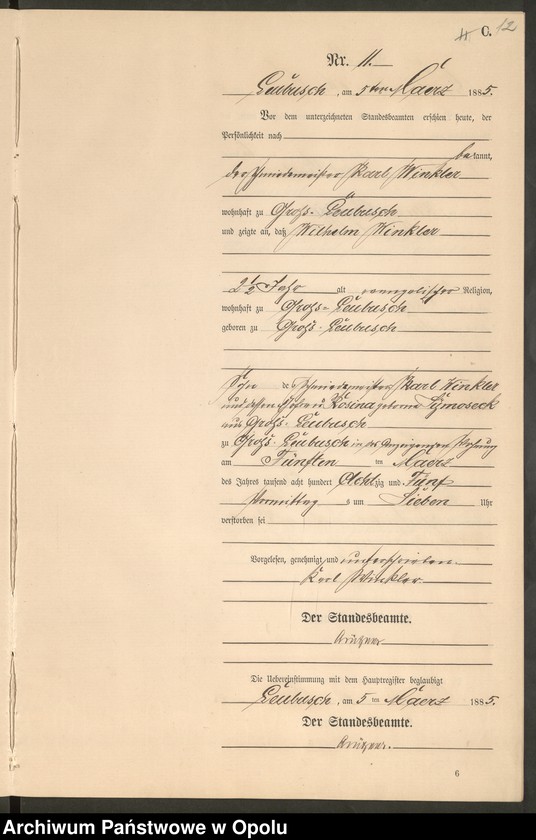 C. 12
Nr. 11.
Leubusch, am 5ten Maerz 1885.
Vor dem unterzeichneten Standesbeamten erschien heute, der
Persönlichkeit nach
bekannt,
der Schmiedemeister Karl Winkler
wohnhaft zu Gross-Leubusch
und zeigte an, daß Wilhelm Winkler
2 1/2 Jahr alt evangelischer Religion,
wohnhaft zu Gross-Leubusch
geboren zu Gross-Leubusch
Sohn des Schmiedemeister Karl Winkler
und dessen Ehefrau Rosina geborne
aus Gross-Leubusch
zu Gross-Leubusch in des Anzeigenden Wohnung
am Fünften ten Maerz
des Jahres tausend acht hundert Achtzig und Fünf
Vormittags um Sieben Uhr
verstorben sei
Vorgelesen, genehmigt und unterschrieben.
Karl Winkler
Der Standesbeamte.
Die Uebereinstimmung mit dem Hauptregister beglaubigt
Leubusch, am 5 ten Maerz 1885.
Der Standesbeamte.
6
Archiwum Państwowe w Opolu